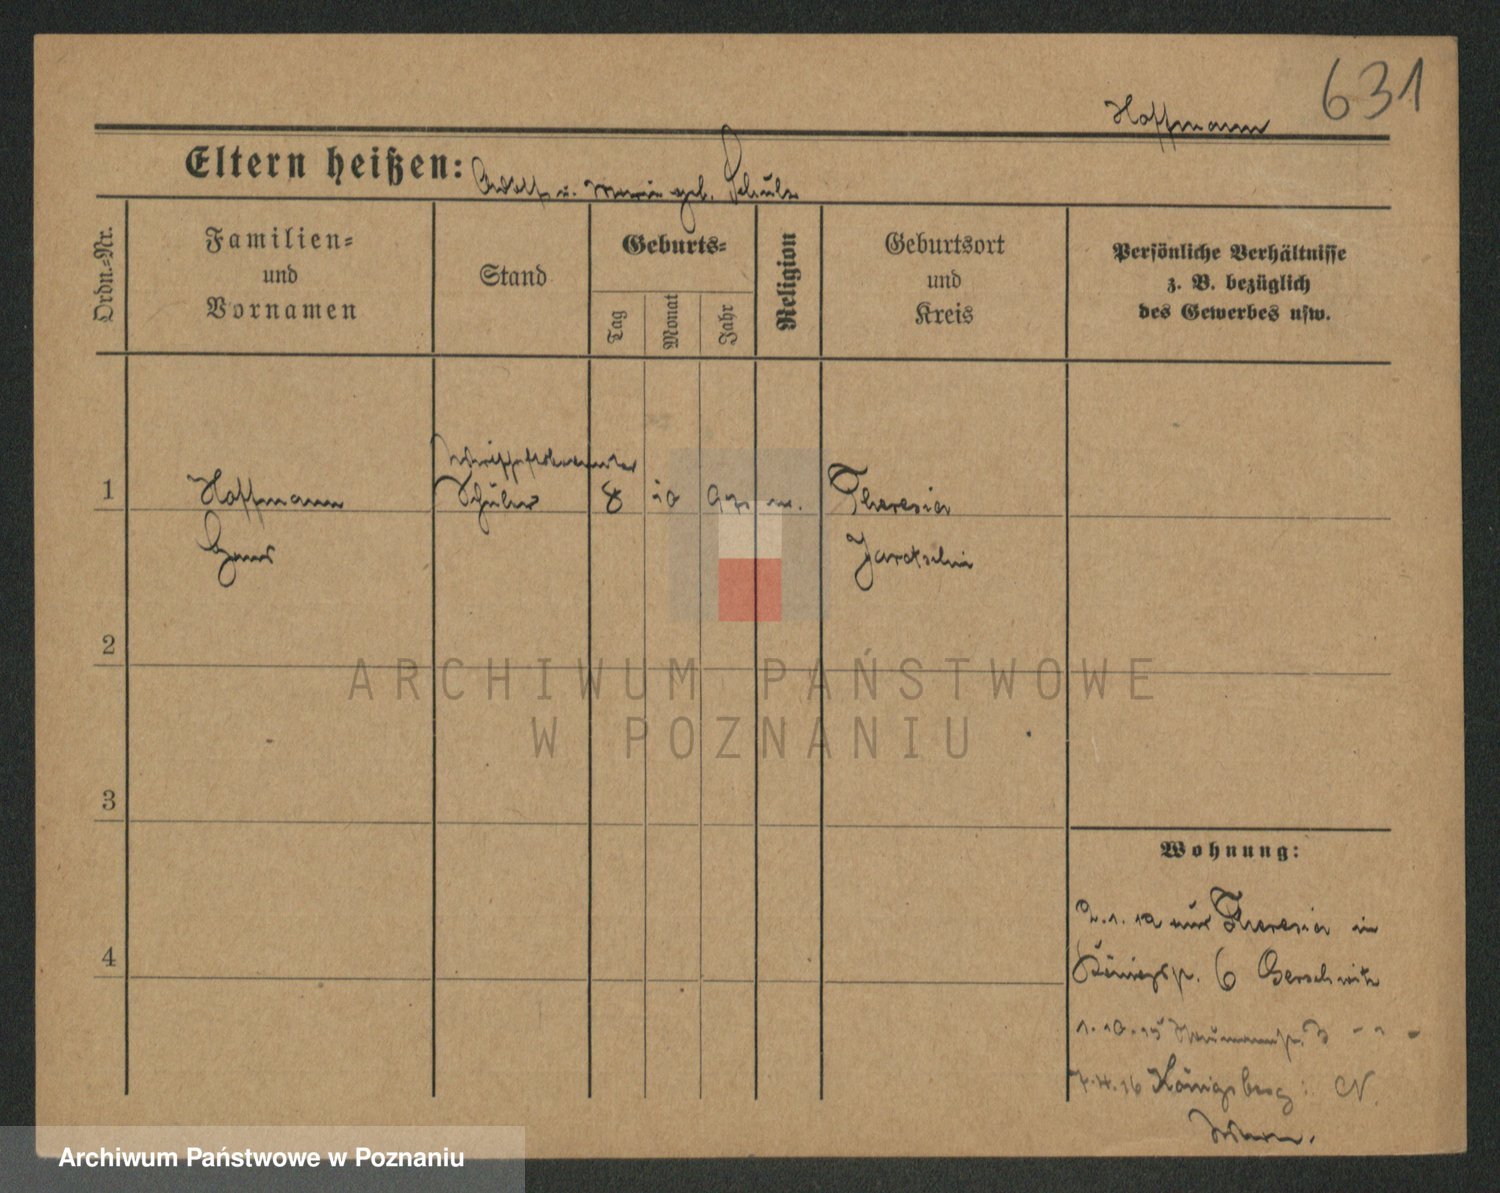 631
Hoffmann
Eltern heißen: Adolf u. Marie geb. Schulz
Ordn.-Nr.
Familien-
und
Vornamen
Stand
Geburts-
Tag
Monat
Jahr
Religion
Geburtsort
und
Kreis
Persönliche Verhältnisse
z. B. bezüglich
des Gewerbes usw.
1
Hoffmann
Schüler
8
10
Theresia
Hans
Jarotschin
2
ARCHIWUM PAŃSTWOWE
W POZNANIU
3
Wohnung:
4
2. 1. 12 aus Theresia in
Königspl. 6
1. 10. 15 3 - " -
7. 4. 16 Königsberg
Archiwum Państwowe w Poznaniu